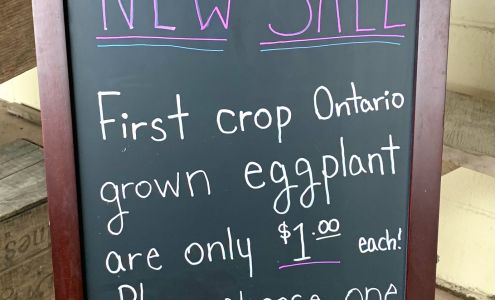 NEW SALE
First crop Ontario
grown eggplant
are only $1.00 each!
choose one